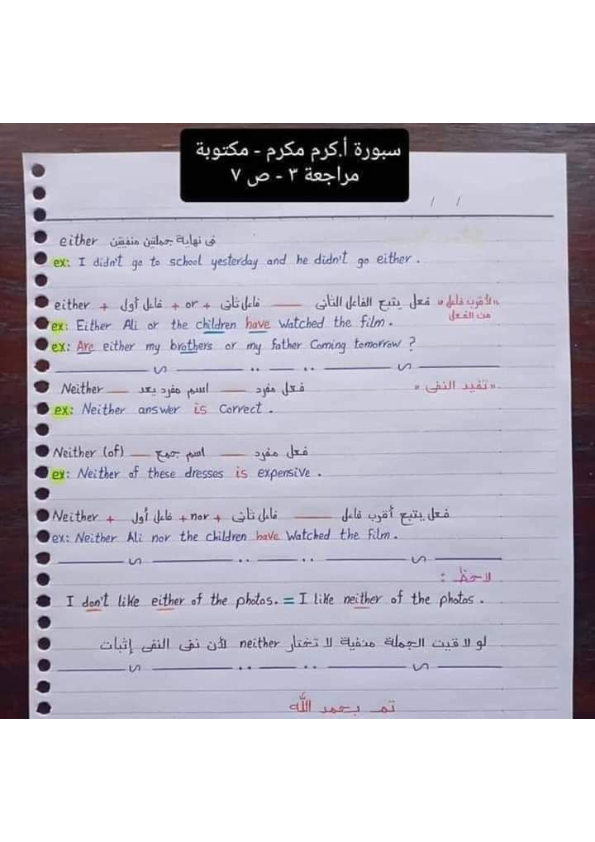 سبورة أ.كرم مكرم - مكتوبة
مراجعة ٣ - ص ٧
/ /
either فى نهاية جملتين منفيتين
ex: I didn't go to school yesterday and he didn't go either.
either + فاعل أول + or + فاعل ثانى —— فعل يتبع الفاعل الثانى «لأقرب فاعل من الفعل»
ex: Either Ali or the children have watched the film.
ex: Are either my brothers or my father coming tomorrow?
Neither —— اسم مفرد يعد —— فعل مفرد «تفيد النفى»
ex: Neither answer is correct.
Neither (of) —— اسم جمع —— فعل مفرد
ex: Neither of these dresses is expensive.
Neither + فاعل أول + nor + فاعل ثانى —— فعل يتبع أقرب فاعل
ex: Neither Ali nor the children have watched the film.
لاحظ :
I don't like either of the photos. = I like neither of the photos.
لو لاقيت الجملة منفية لا تختار neither لأن نفى النفى إثبات
تم بحمد الله